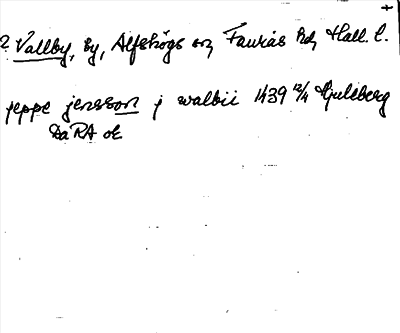 +
? Vallby, by, Alfshögs sn, Faurås hd, Hall. l.
jeppe jensson j walbii 1439 12/4 Hjuleberg
DaRA or